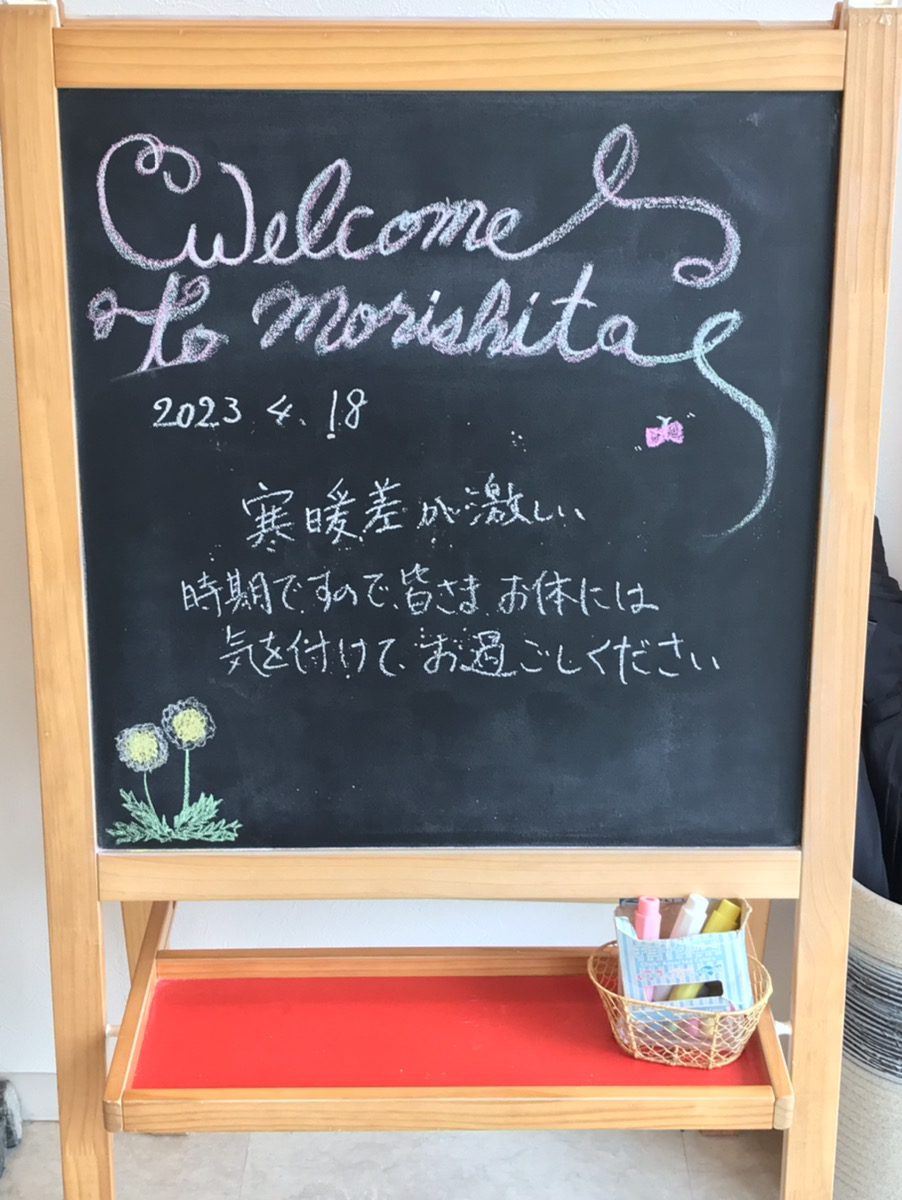 Welcome
To morishita
2023 4. 18
寒暖差が激しい
時期ですので、皆さま お体には
気を付けて、お過ごしください